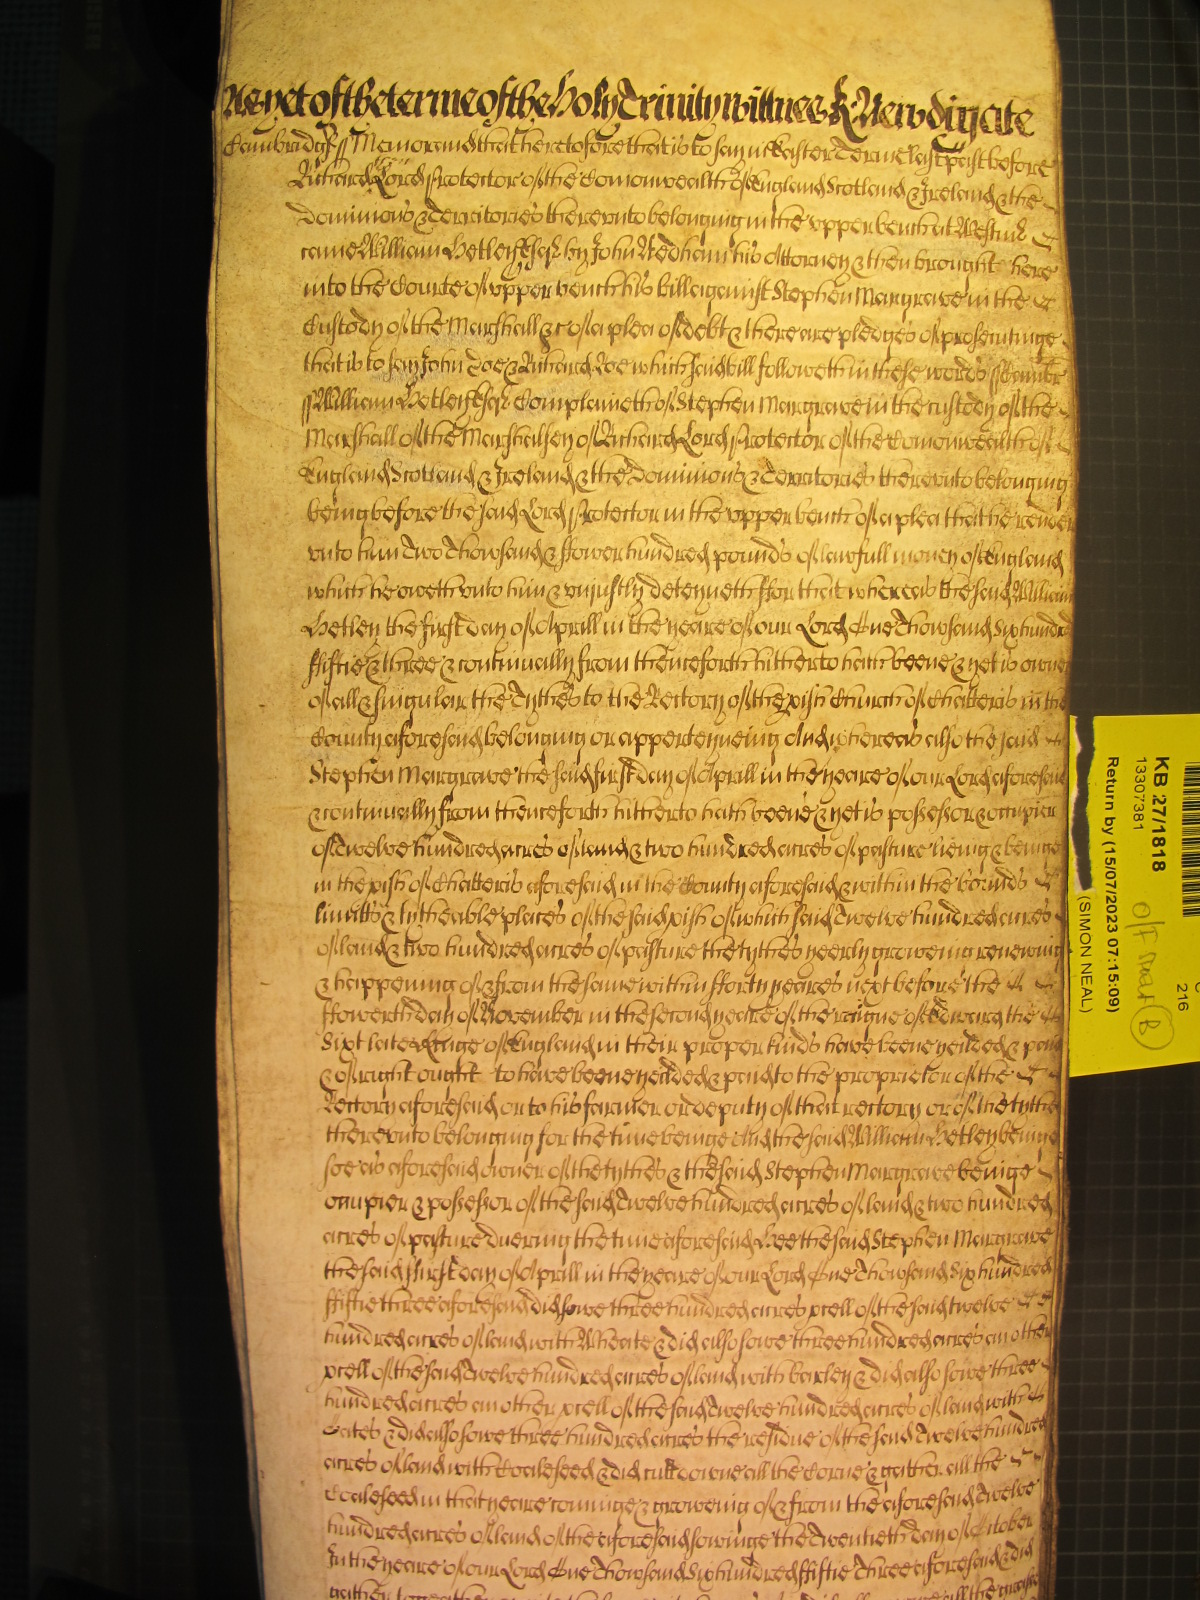 As yet of the terme of the Holy Trinity wittnes R: Newdigate
Cambridg ss Memorand that heretofore that is to say in Easter Terme last past before
Richard Lord Protector of the Comonwealth of England Scotland & Ireland & the
Dominions & Territories thereunto belonging in the upper bench at Westm
came William Hetley Esqr by John Redham his Attorney & then brought here
into the Courte of upper bench his bill against Stephen Margrave in the
Custody of the Marshall &c of a plea of debt & there are pledges of prosecutinge
that is to say John Doe & Richard Roe which said bill followeth in these words ss Cambr
ss William Hetley Esqr Complaineth of Stephen Margrave in the custody of the
Marshall of the Marshalsey of Richard Lord Protector of the Comonwealth of
England Scotland & Ireland & the Dominions & Territories thereunto belonging
being before the said Lord Protector in the upper bench of a plea that he render
unto him Two Thowsand & ffower hundred pounds of lawfull money of England
which he oweth unto him & unjustly deteyneth ffor that whereas the said William
Hetley the first day of Aprill in the yeare of our Lord One Thowsand Six hundred
ffiftie & three & continually from thenceforth hitherto hath beene & yet is owner
of all & singular the Tythes to the Rectory of the pish Church of Chatteris in the
County aforesaid belonging or apperteyneing And whereas also the said
Stephen Margrave the said first day of Aprill in the yeare of our Lord aforesaid
& continually from thenceforth hitherto hath beene & yet is possessor & occupier
of Twelve hundred acres of land & two hundred acres of pasture lieing & beinge
in the pish of Chatteris aforesaid in the County aforesaid & within the bounds
limitts & tytheable places of the said pish of which said Twelve hundred acres
of land & two hundred acres of pasture the tythes yeerly groweing renewing
& happening of & from the same within fforty yeares next before the
ffowerth day of November in the second yeare of the raigne of Edward the
Sixt late Kinge of England in their proper kinds have beene yeilded & paid
& of right ought to have beene yeilded & paid to the proprietor of the
Rectory aforesaid or to his farmer or deputy of that rectory or of the tythes
thereunto belonging for the time beinge And the said William Hetley beinge
soe as aforesaid owner of the tythes & the said Stephen Margrave beinge
occupier & possessor of the said Twelve hundred acres of land & two hundred
acres of pasture dureing the time aforesaid Hee the said Stephen Margrave
the said first day of Aprill in the yeare of our Lord One Thowsand Six hundred
ffiftie three aforesaid did sowe three hundred acres pcell of the said twelve
hundred acres of land with Wheate & did also sowe three hundred acres another
pcell of the said Twelve hundred acres of land with barley & did also sowe three
hundred acres another pcell of the said Twelve hundred acres of land with
Oates & did also sowe three hundred acres the residue of the said Twelve hundred
acres of land with Coaleseed & did cutt downe all the Corne & gather all the
Coaleseed in that yeare comeinge & groweing of & from the aforesaid Twelve
hundred acres of land of the aforesaid sowinge the Twentieth day of October
In the yeare of our Lord One Thowsand Six hundred ffiftie Three aforesaid & did
gather together
KB 27/1818
13307381
Return by (15/07/2023 07:15:09)
(SIMON NEAL)
216
B